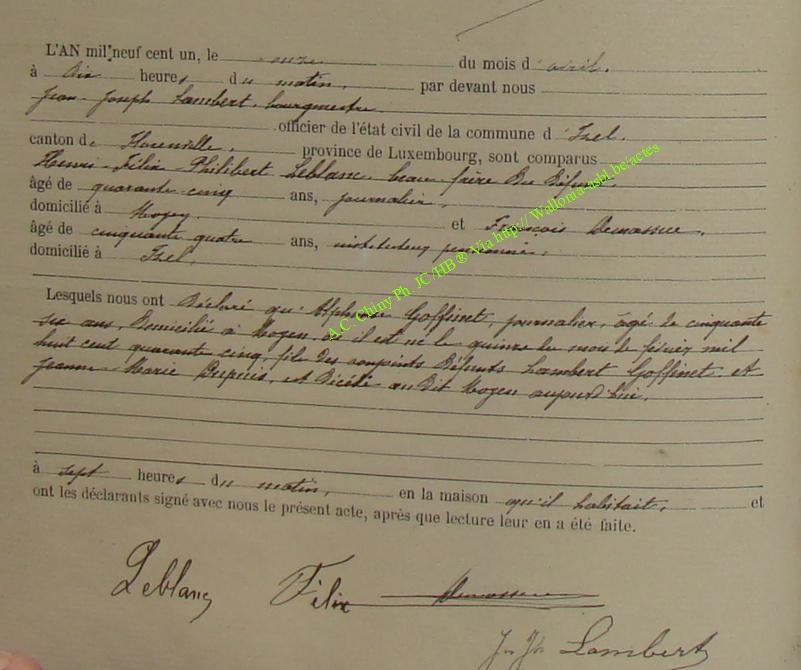 L'AN mil neuf cent un, le onze du mois d'avril.
à dix heures du matin, par devant nous
Jean-Joseph Lambert, bourgmestre
officier de l'état civil de la commune d'Izel.
canton de Florenville, province de Luxembourg, sont comparus
Henri-Félix-Philibert Leblanc, beau frère du défunt,
âgé de quarante-cinq ans, journalier,
domicilié à Moyen, et François Demasure,
âgé de cinquante quatre ans, instituteur pensionné,
domicilié à Izel
Lesquels nous ont déclaré qu'Alphonse Goffinet, journalier, âgé de cinquante
six ans, domicilié à Moyen, où il est né le quinze du mois de février mil
huit cent quarante cinq, fils des conjoints défunts Lambert Goffinet et
Jeanne-Marie Dupuis, est décédé au dit Moyen aujourd'hui.
à sept heures du matin, en la maison qu'il habitait, et
ont les déclarants signé avec nous le présent acte, après que lecture leur en a été faite.
Leblanc Félix
Jn Jh Lambert
A.C. Chiny Ph. JC/HB ® Via http// Wallonia-asbl.be/actes